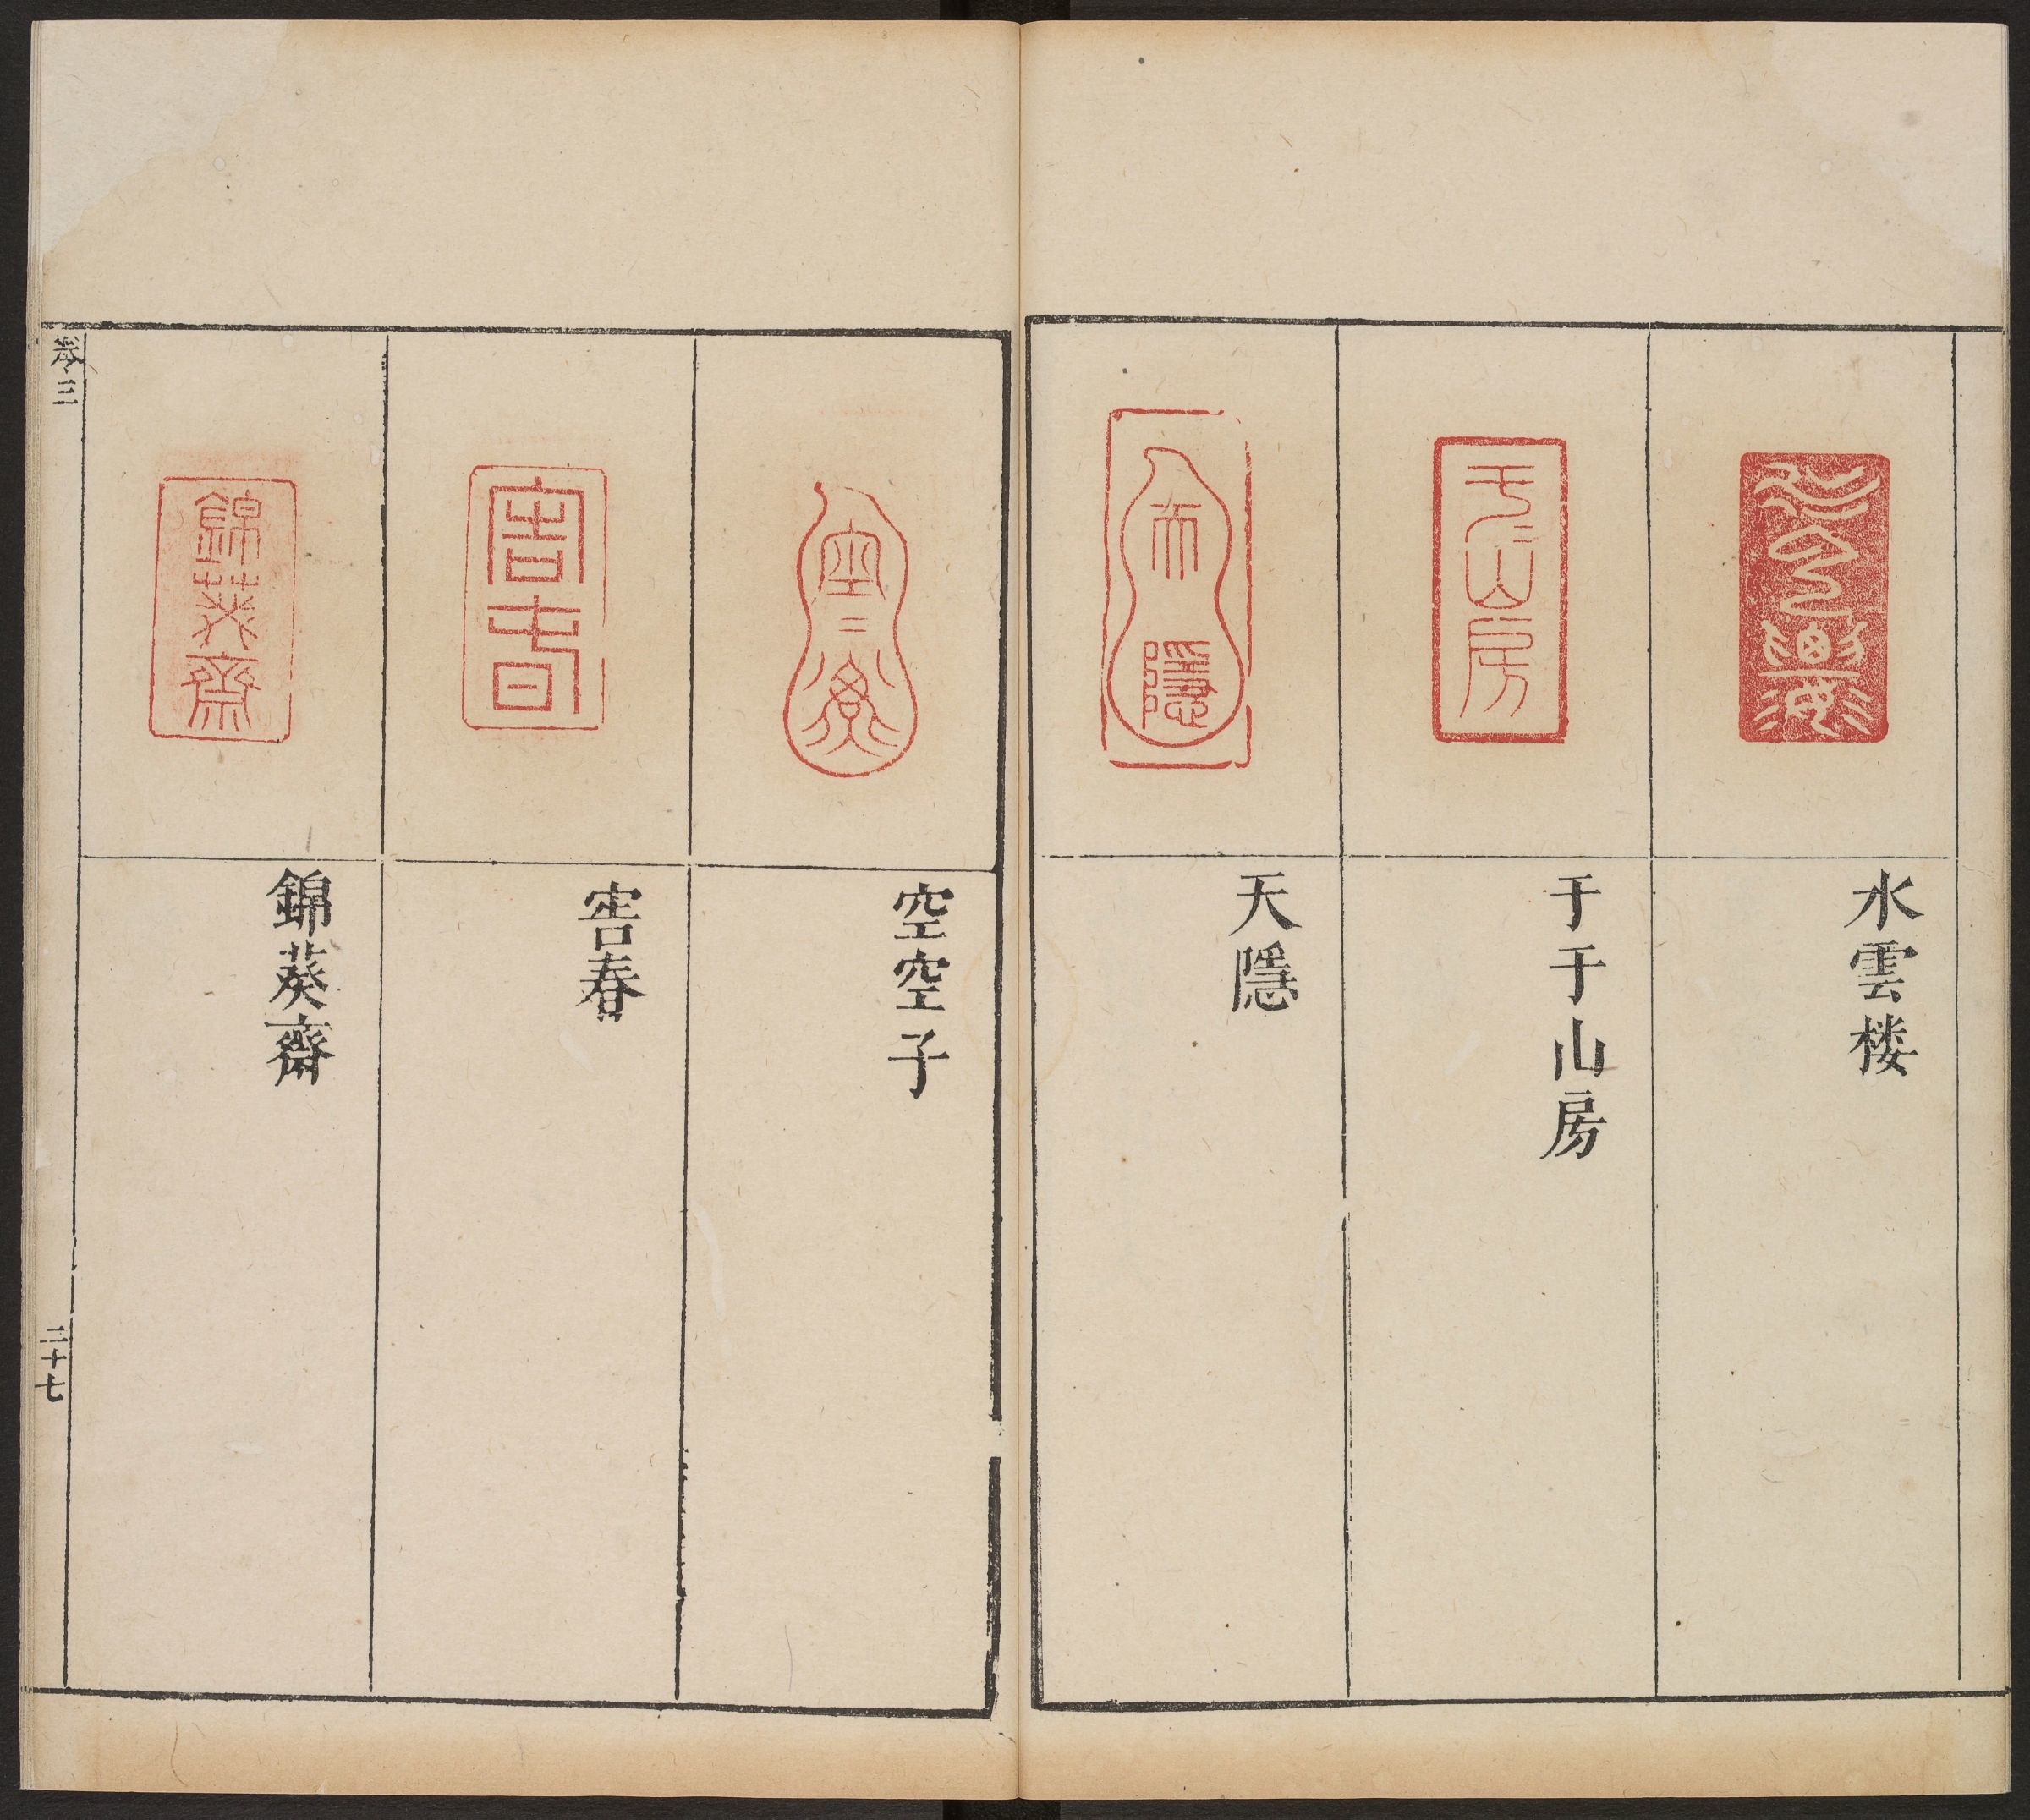 水雲楼
于于山房
天隱
空空子
害春
錦葵齋
卷三
二十七